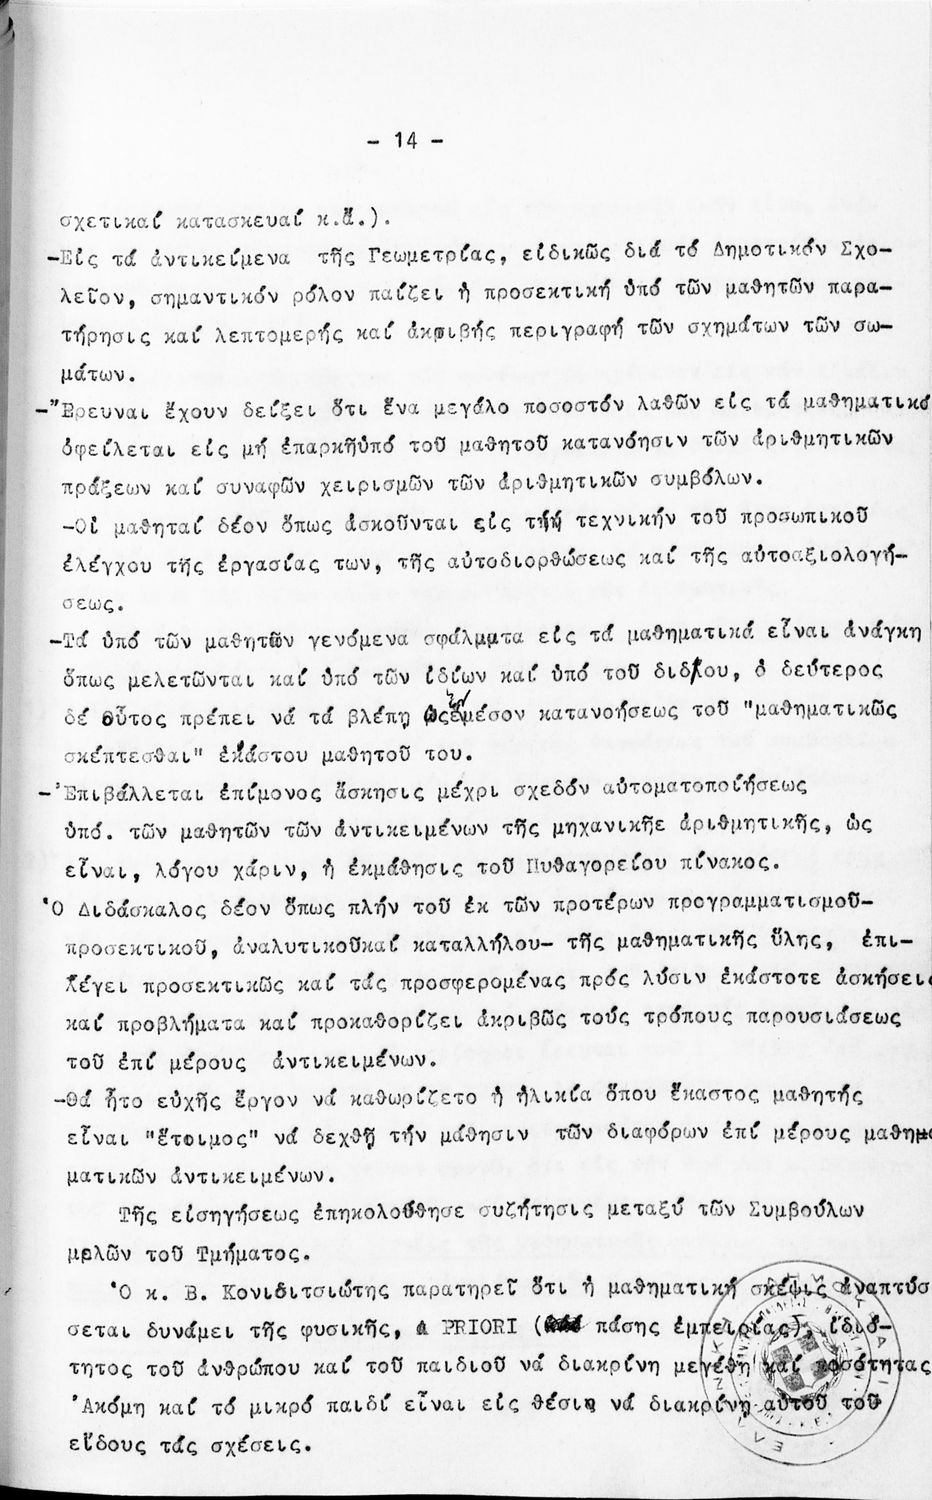 - 14 -
σχετικαί κατασκευαί κ.ἄ.).
-Εἰς τά ἀντικείμενα τῆς Γεωμετρίας, εἰδικῶς διά τό Δημοτικόν Σχο-
λεῖον, σημαντικόν ρόλον παίζει ἡ προσεκτική ὑπό τῶν μαθητῶν παρα-
τήρησις καί λεπτομερής καί ἀκριβής περιγραφή τῶν σχημάτων τῶν σω-
μάτων.
-Ἔρευναι ἔχουν δείξει ὅτι ἕνα μεγάλο ποσοστόν λαθῶν εἰς τά μαθηματικά
ὀφείλεται εἰς μή ἐπαρκῆὑπό τοῦ μαθητοῦ κατανόησιν τῶν ἀριθμητικῶν
πράξεων καί συναφῶν χειρισμῶν τῶν ἀριθμητικῶν συμβόλων.
-Οἱ μαθηταί δέον ὅπως ἀσκοῦνται εἰς τήν τεχνικήν τοῦ προσωπικοῦ
ἐλέγχου τῆς ἐργασίας των, τῆς αὐτοδιορθώσεως καί τῆς αὐτοαξιολογή-
σεως.
-Τά ὑπό τῶν μαθητῶν γενόμενα σφάλματα εἰς τά μαθηματικά εἶναι ἀνάγκη
ὅπως μελετῶνται καί ὑπό τῶν ἰδίων καί ὑπό τοῦ διδ/ου, ὁ δεύτερος
δέ οὗτος πρέπει νά τά βλέπῃ ὡς μέσον κατανοήσεως τοῦ "μαθηματικῶς
σκέπτεσθαι" ἑκάστου μαθητοῦ του.
-Ἐπιβάλλεται ἐπίμονος ἄσκησις μέχρι σχεδόν αὐτοματοποιήσεως
ὑπό. τῶν μαθητῶν τῶν ἀντικειμένων τῆς μηχανικῆε ἀριθμητικῆς, ὡς
εἶναι, λόγου χάριν, ἡ ἐκμάθησις τοῦ Πυθαγορείου πίνακος.
Ὁ Διδάσκαλος δέον ὅπως πλήν τοῦ ἐκ τῶν προτέρων προγραμματισμοῦ-
προσεκτικοῦ, ἀναλυτικοῦκαί καταλλήλου- τῆς μαθηματικῆς ὕλης, ἐπι-
λέγει προσεκτικῶς καί τάς προσφερομένας πρός λύσιν ἑκάστοτε ἀσκήσεις
καί προβλήματα καί προκαθορίζει ἀκριβῶς τούς τρόπους παρουσιάσεως
τοῦ ἐπί μέρους ἀντικειμένων.
-Θά ἦτο εὐχῆς ἔργον νά καθωρίζετο ἡ ἡλικία ὅπου ἕκαστος μαθητής
εἶναι "ἕτοιμος" νά δεχθῇ τήν μάθησιν τῶν διαφόρων ἐπί μέρους μαθη-
ματικῶν ἀντικειμένων.
Τῆς εἰσηγήσεως ἐπηκολούθησε συζήτησις μεταξύ τῶν Συμβούλων
μελῶν τοῦ Τμήματος.
Ὁ κ. Β. Κονιδιτσιώτης παρατηρεῖ ὅτι ἡ μαθηματική σκέψις ἀναπτύσ
σεται δυνάμει τῆς φυσικῆς, A PRIORI ( πάσης ἐμπειρίας), ἰδιό-
τητος τοῦ ἀνθρώπου καί τοῦ παιδιοῦ νά διακρίνη μεγέθη καί ποσότητας
Ἀκόμη καί τό μικρό παιδί εἶναι εἰς θέσιν νά διακρίνῃ αὐτοῦ τοῦ
εἴδους τάς σχέσεις.